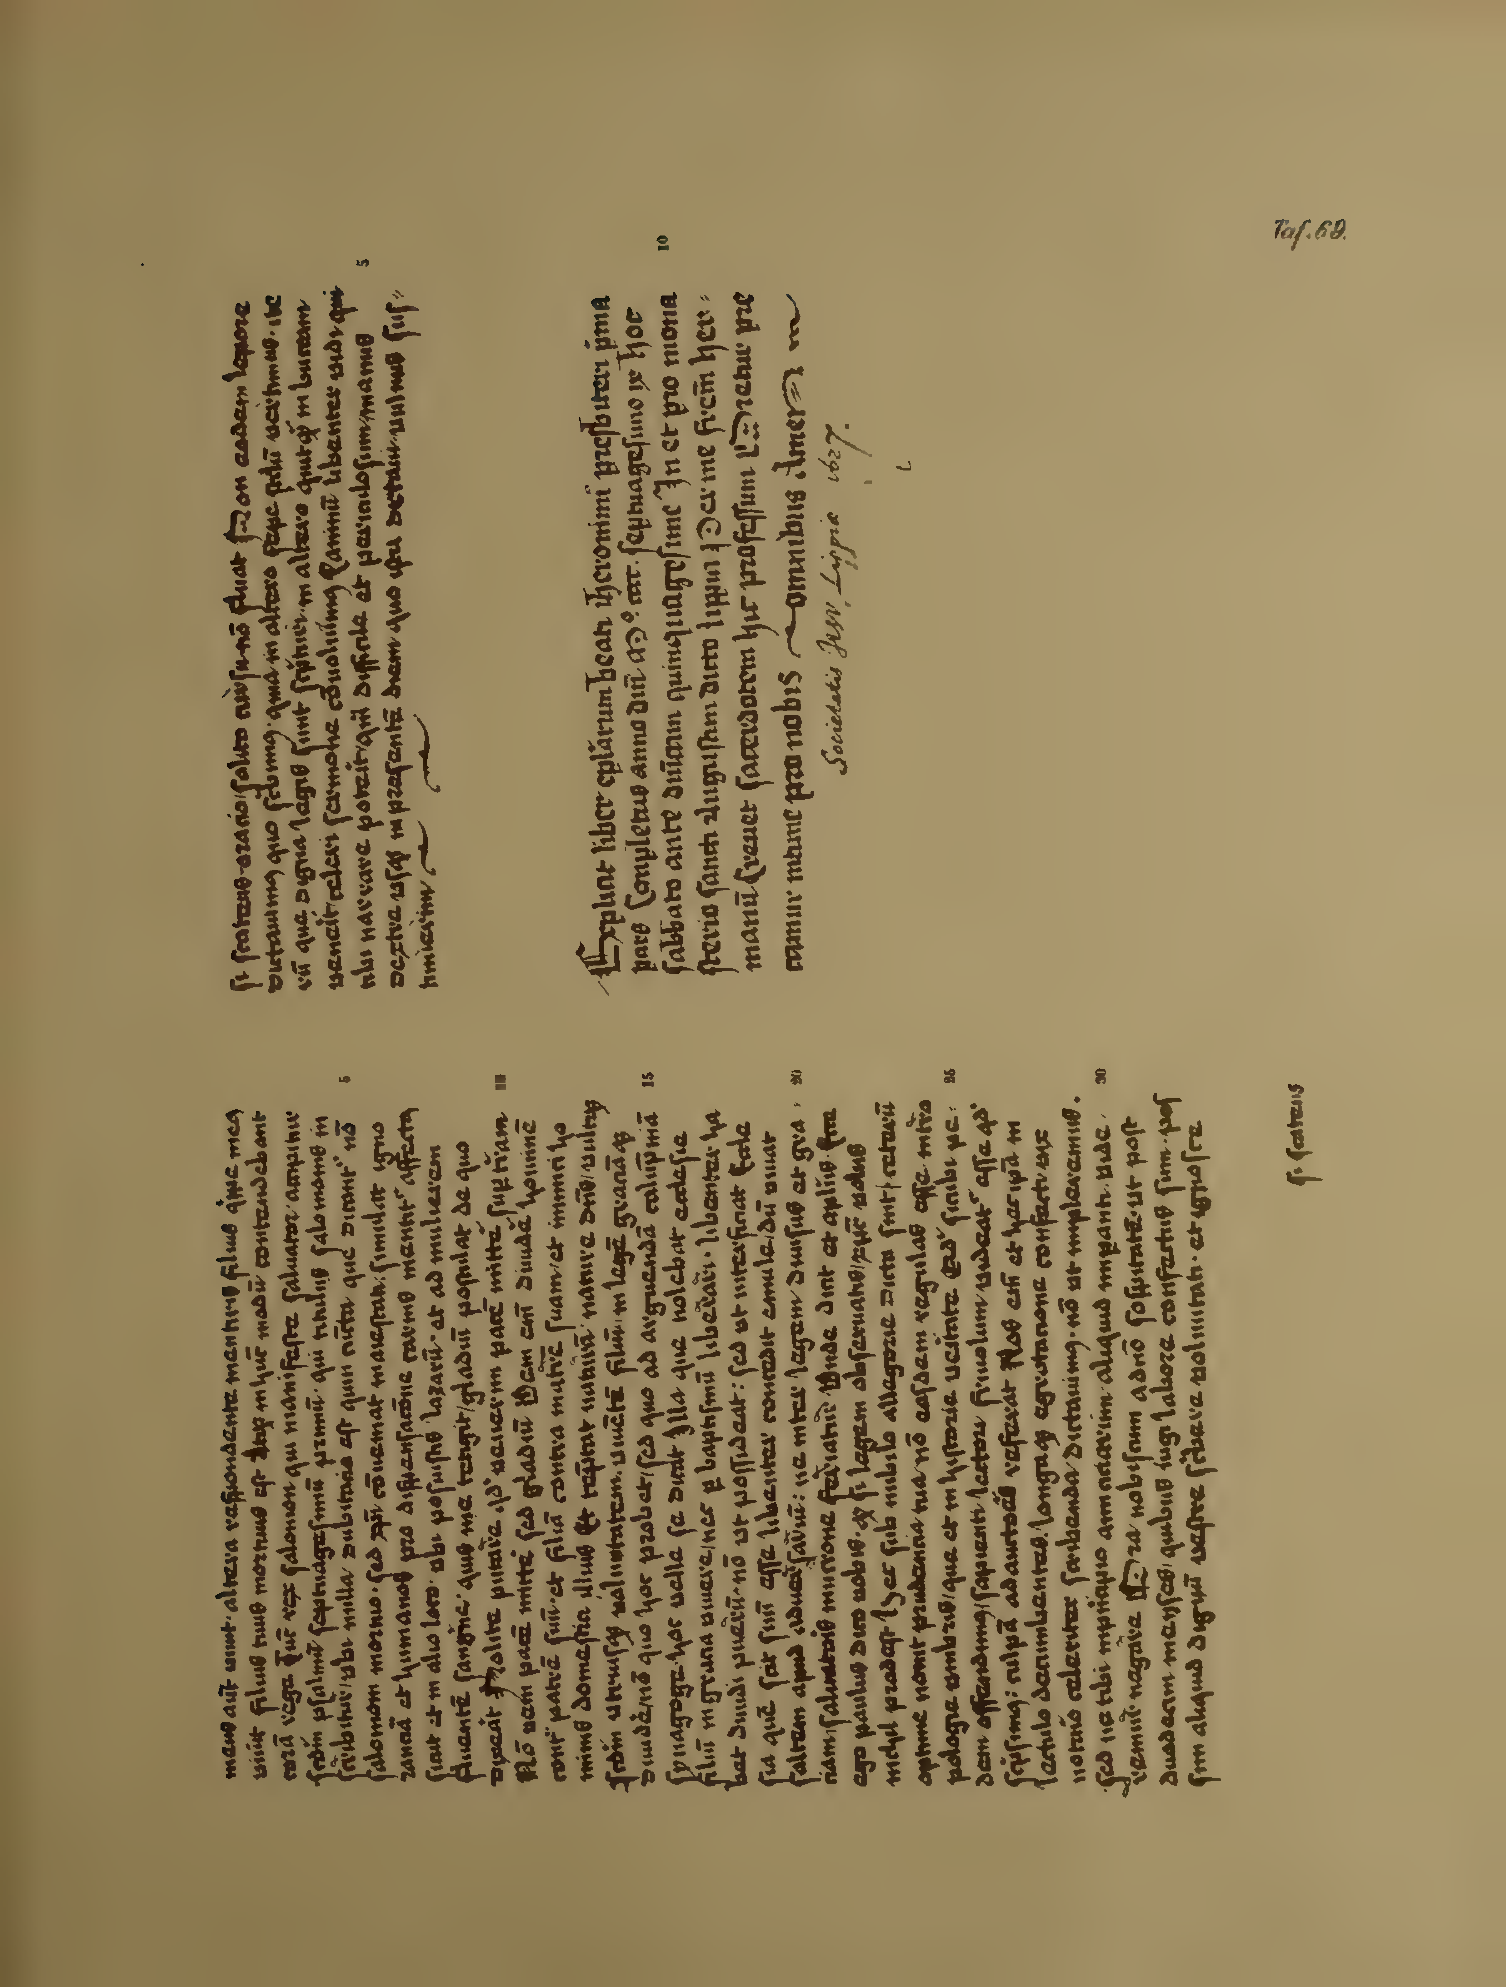 meus aut̄ uiuit. altera respondente mentiris filius q̈ippe meꝯ
uiuit filius tuus mortuus est atqꝫ in hūc modū contendebant
corā rege Tūc rex salomon qui manifeste saluator accipitur
scdm psalmū septuagesimū primū. qui titulis salomonis in
scribitur/ubi nulla dubitatio est quin cūcta que dicunt̄ nō
salomoni mortuo. sed xp̄i cōueniāt maiestati: simulat igno
rantiā et humanos pro dispensacōne carnis mentit̄ affectus
sicut et in alio loco. ubi posuistis lazarū. et ad mulierem
fluentē sanguīe. quis me tetigit/gladiū postulat de quo
dixerat Nolite putare qd̄ uenerim pacē mittē sup tram
Nō veni pacē mittē sed gladiū Veni em̄ diuidē hominē
cont̄ patrē suū. et filiā contra matrē suam et inimici ho
minis domestici illius Et tēptat naturā nature dn̄s/utrūqꝫ
scdm utriusqꝫ uoluntatem. uiuētē filiū. in legē graciāqꝫ
diuidē/nō quo hoc probet/sed quo ad arguendā calūpniā
synagoge. hoc uelle se dicat Illa que nolebat ecclesie
filiū in gracia uiuere/nec p baptismū liberari. libenter ha
bet diuidi puerū. nō ut possideat: sed ut interficiat
sia quē scit suū esse libenter concedit emule/dū uiuat
saltem apud aduersariū: ne inter legem diuisus et gra.
ciam/saluatoris mucrone feriatur Vnde dicit et apl̄us. Ecce
ego paulus dico uobis. qꝫ si legem obseruatis/xp̄c uobis
nichil prodest Hec sub nubilo allegorie dicta sint/ceterū
optime nouit prudencia tua nō easdem regulas esse in tro
pologie umbris/que et in historie ueritate
dem offendimꝯ/sapienti lectori friuolum uideat̄ esse qd̄
scripsimꝯ: culpā ad auctorē referat Nos em̄ et hec ipā in
lectulo decumbentes/longaqꝫ egrotatione confecti/uix
notario celeriter scribenda dictauimꝯ. nō ut impleremus.
sed ne tibi in principio amicitiarum aliquid imperanti uide
remur negare Ora nobis cum a dn̄o sospitatē ut post
duodecim menses/quibus iugi labore confectus sum. pos
sim aliquid dignū uestre scribere uoluntati. et ignosce
si scatens
si scatens oratio solito cursu nō fluat Non eodem lepore
dictamus quo scribimꝯ. quia in altero sepe stilū uertimus. ite
rū que digna legi sunt scripturi. in altero quicquid in buccam
uenerit celeri sermone cōuoluimꝯ Caninū libenter uidi qui
tibi narrare poterit qm̄ difficile et periculosum manus
dextre usqꝫ in presentē diem quo hec dictaui uulnus sus⸗
tinuerim
Explicit liber epl̄arum beati iheronimi presbiteri prima
pars Completus anno dn̄i M°. cccc. septuagesimo ix hoc
sabbato ante dn̄icam quinquagesime In et pro mona
sterio sancti Augustini dicto lippia Per me fr̄em Her⸗
manū Greuer sacerdotem hic professum Oretur pre
camur nunc pro nobis omnibus Amen
Societatis Jesu Lippiæ 1627.
Taf. 68.
5
10
15
20
25
30
5
10